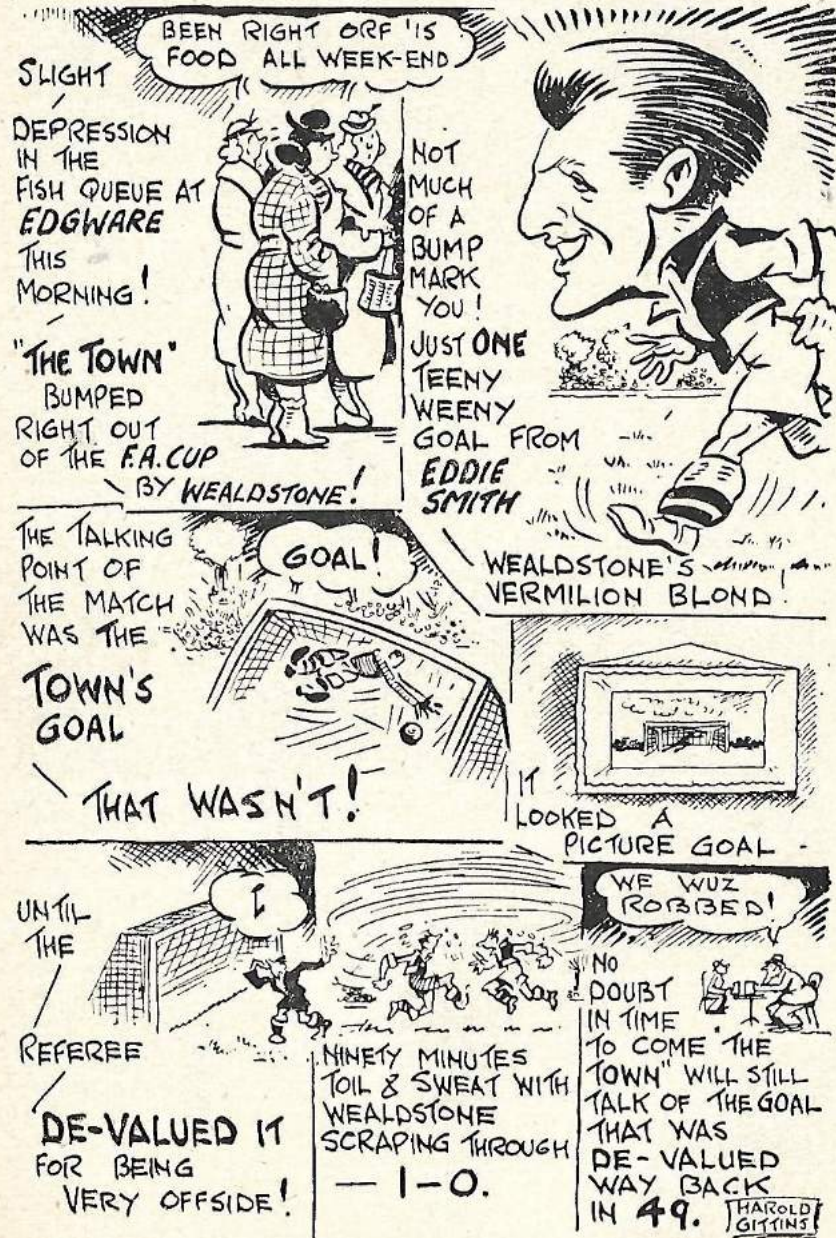 BEEN RIGHT ORF 'IS
FOOD ALL WEEK-END
SLIGHT
DEPRESSION
IN THE
FISH QUEUE AT
EDGWARE
THIS
MORNING!
"THE TOWN"
BUMPED
RIGHT OUT
OF THE F.A. CUP
BY WEALDSTONE!
NOT
MUCH
OF A
BUMP
MARK
YOU!
JUST ONE
TEENY
WEENY
GOAL FROM
EDDIE
SMITH
WEALDSTONE'S
VERMILION BLOND!
THE TALKING
POINT OF
THE MATCH
WAS THE
TOWN'S
GOAL
THAT WASN'T!
GOAL!
IT
LOOKED A
PICTURE GOAL -
UNTIL
THE
REFEREE
DE-VALUED IT
FOR BEING
VERY OFFSIDE!
NINETY MINUTES
TOIL & SWEAT WITH
WEALDSTONE
SCRAPING THROUGH
— 1-0.
WE WUZ
ROBBED!
NO
DOUBT
IN TIME
TO COME THE
TOWN" WILL STILL
TALK OF THE GOAL
THAT WAS
DE-VALUED
WAY BACK
IN 49.
HAROLD
GITTINS